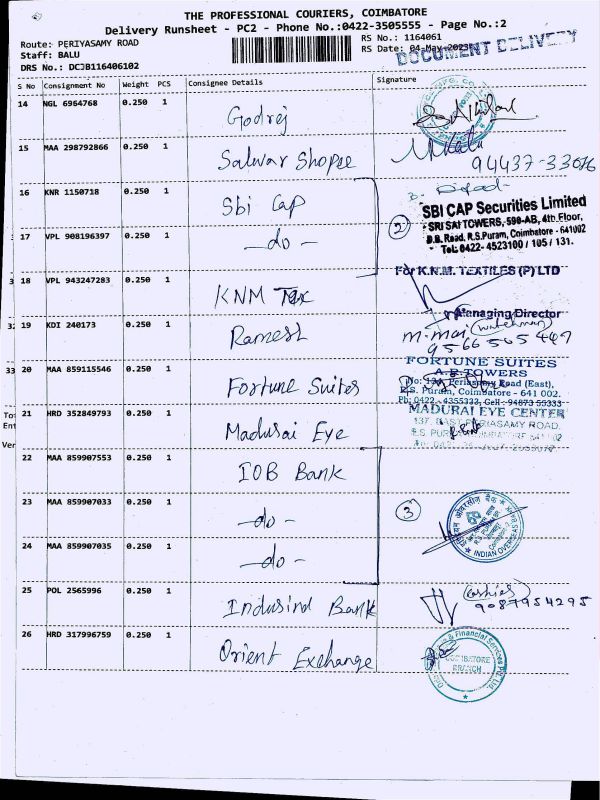 THE PROFESSIONAL COURIERS, COIMBATORE
Delivery Runsheet - PC2 - Phone No.:0422-3505555 - Page No.:2
Route: PERIYASAMY ROAD
RS No.: 1164061
Staff: BALU
RS Date: 04-May-2023
DRS No.: DCJB116406102
DOCUMENT DELIVERY
S No Consignment No Weight PCS Consignee Details Signature
14 NGL 6964768 0.250 1 Godrej
15 MAA 298792866 0.250 1 Salwar Shopee
94437-33076
16 KNR 1150718 0.250 1 Sbi Cap
SBI CAP Securities Limited
SRI SAI TOWERS, 590-AB, 4th Floor,
D.B. Road, R.S.Puram, Coimbatore - 641002
Tel: 0422- 4523100 / 105 / 131.
2
17 VPL 908196397 0.250 1 -do-
18 VPL 943247283 0.250 1 KNM Tex
For K.N.M. TEXTILES (P) LTD
Managing Director
19 KDI 240173 0.250 1 Ramesh
(watchman)
9566505449
20 MAA 859115546 0.250 1 Fortune Suites
FORTUNE SUITES
A.E.TOWERS
Periasamy Road (East),
R.S. Puram, Coimbatore - 641 002.
Ph: 0422- 4355333, Cell: 94873 55333
21 HRD 352849793 0.250 1 Madurai Eye
MADURAI EYE CENTER
137, EAST PERIASAMY ROAD,
22 MAA 859907553 0.250 1 IOB Bank
23 MAA 859907033 0.250 1 -do-
3
INDIAN OVERSEAS
24 MAA 859907035 0.250 1 -do-
25 POL 2565996 0.250 1 Indusind Bank
(cashier)
9087954295
26 HRD 317996759 0.250 1 Orient Exchange
& Financial Services Pvt. Ltd.
COIMBATORE
BRANCH